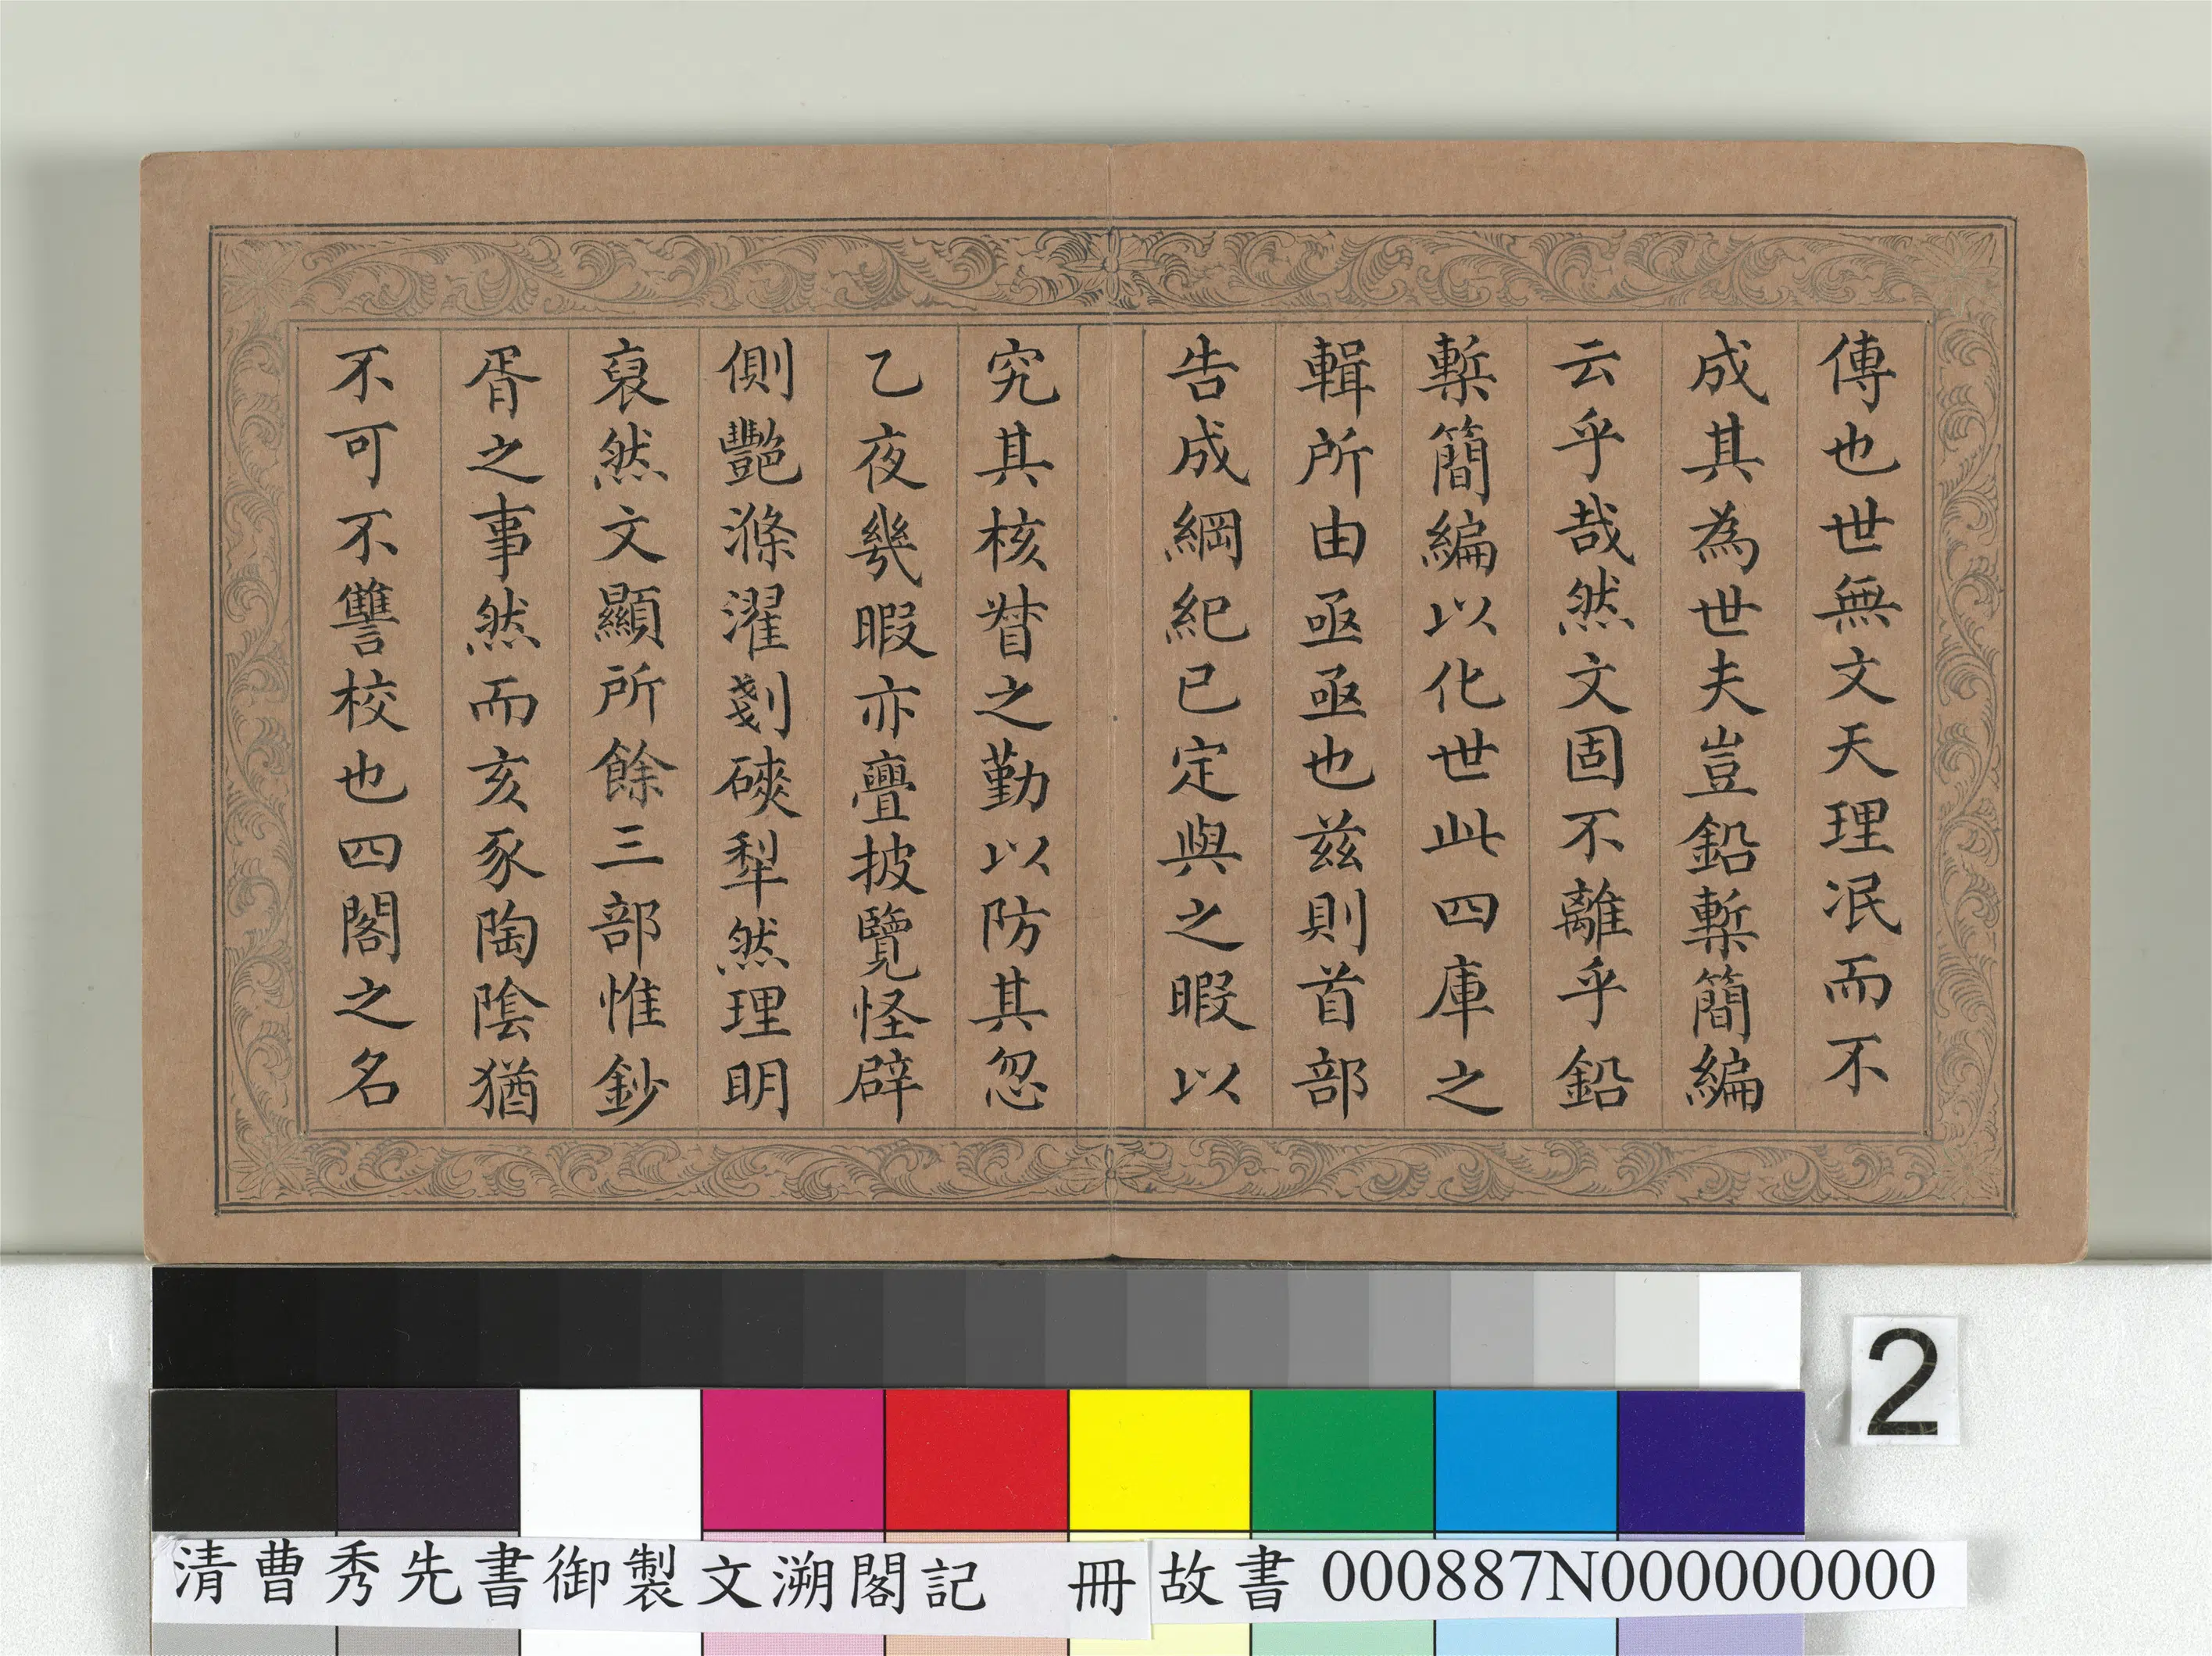 傳也世無文天理泯而不
成其為世夫豈鉛槧簡編
云乎哉然文固不離乎鉛
槧簡編以化世此四庫之
輯所由亟亟也兹則首部
告成綱紀已定與之暇以
究其核督之勤以防其忽
乙夜幾暇亦亹披覽怪僻
側艷滌濯剗磢犁然理明
裒然文顯所餘三部惟鈔
胥之事然而亥豕陶陰猶
不可不讐校也四閣之名
2
清曹秀先書御製文溯閣記 冊 故書000887N000000000